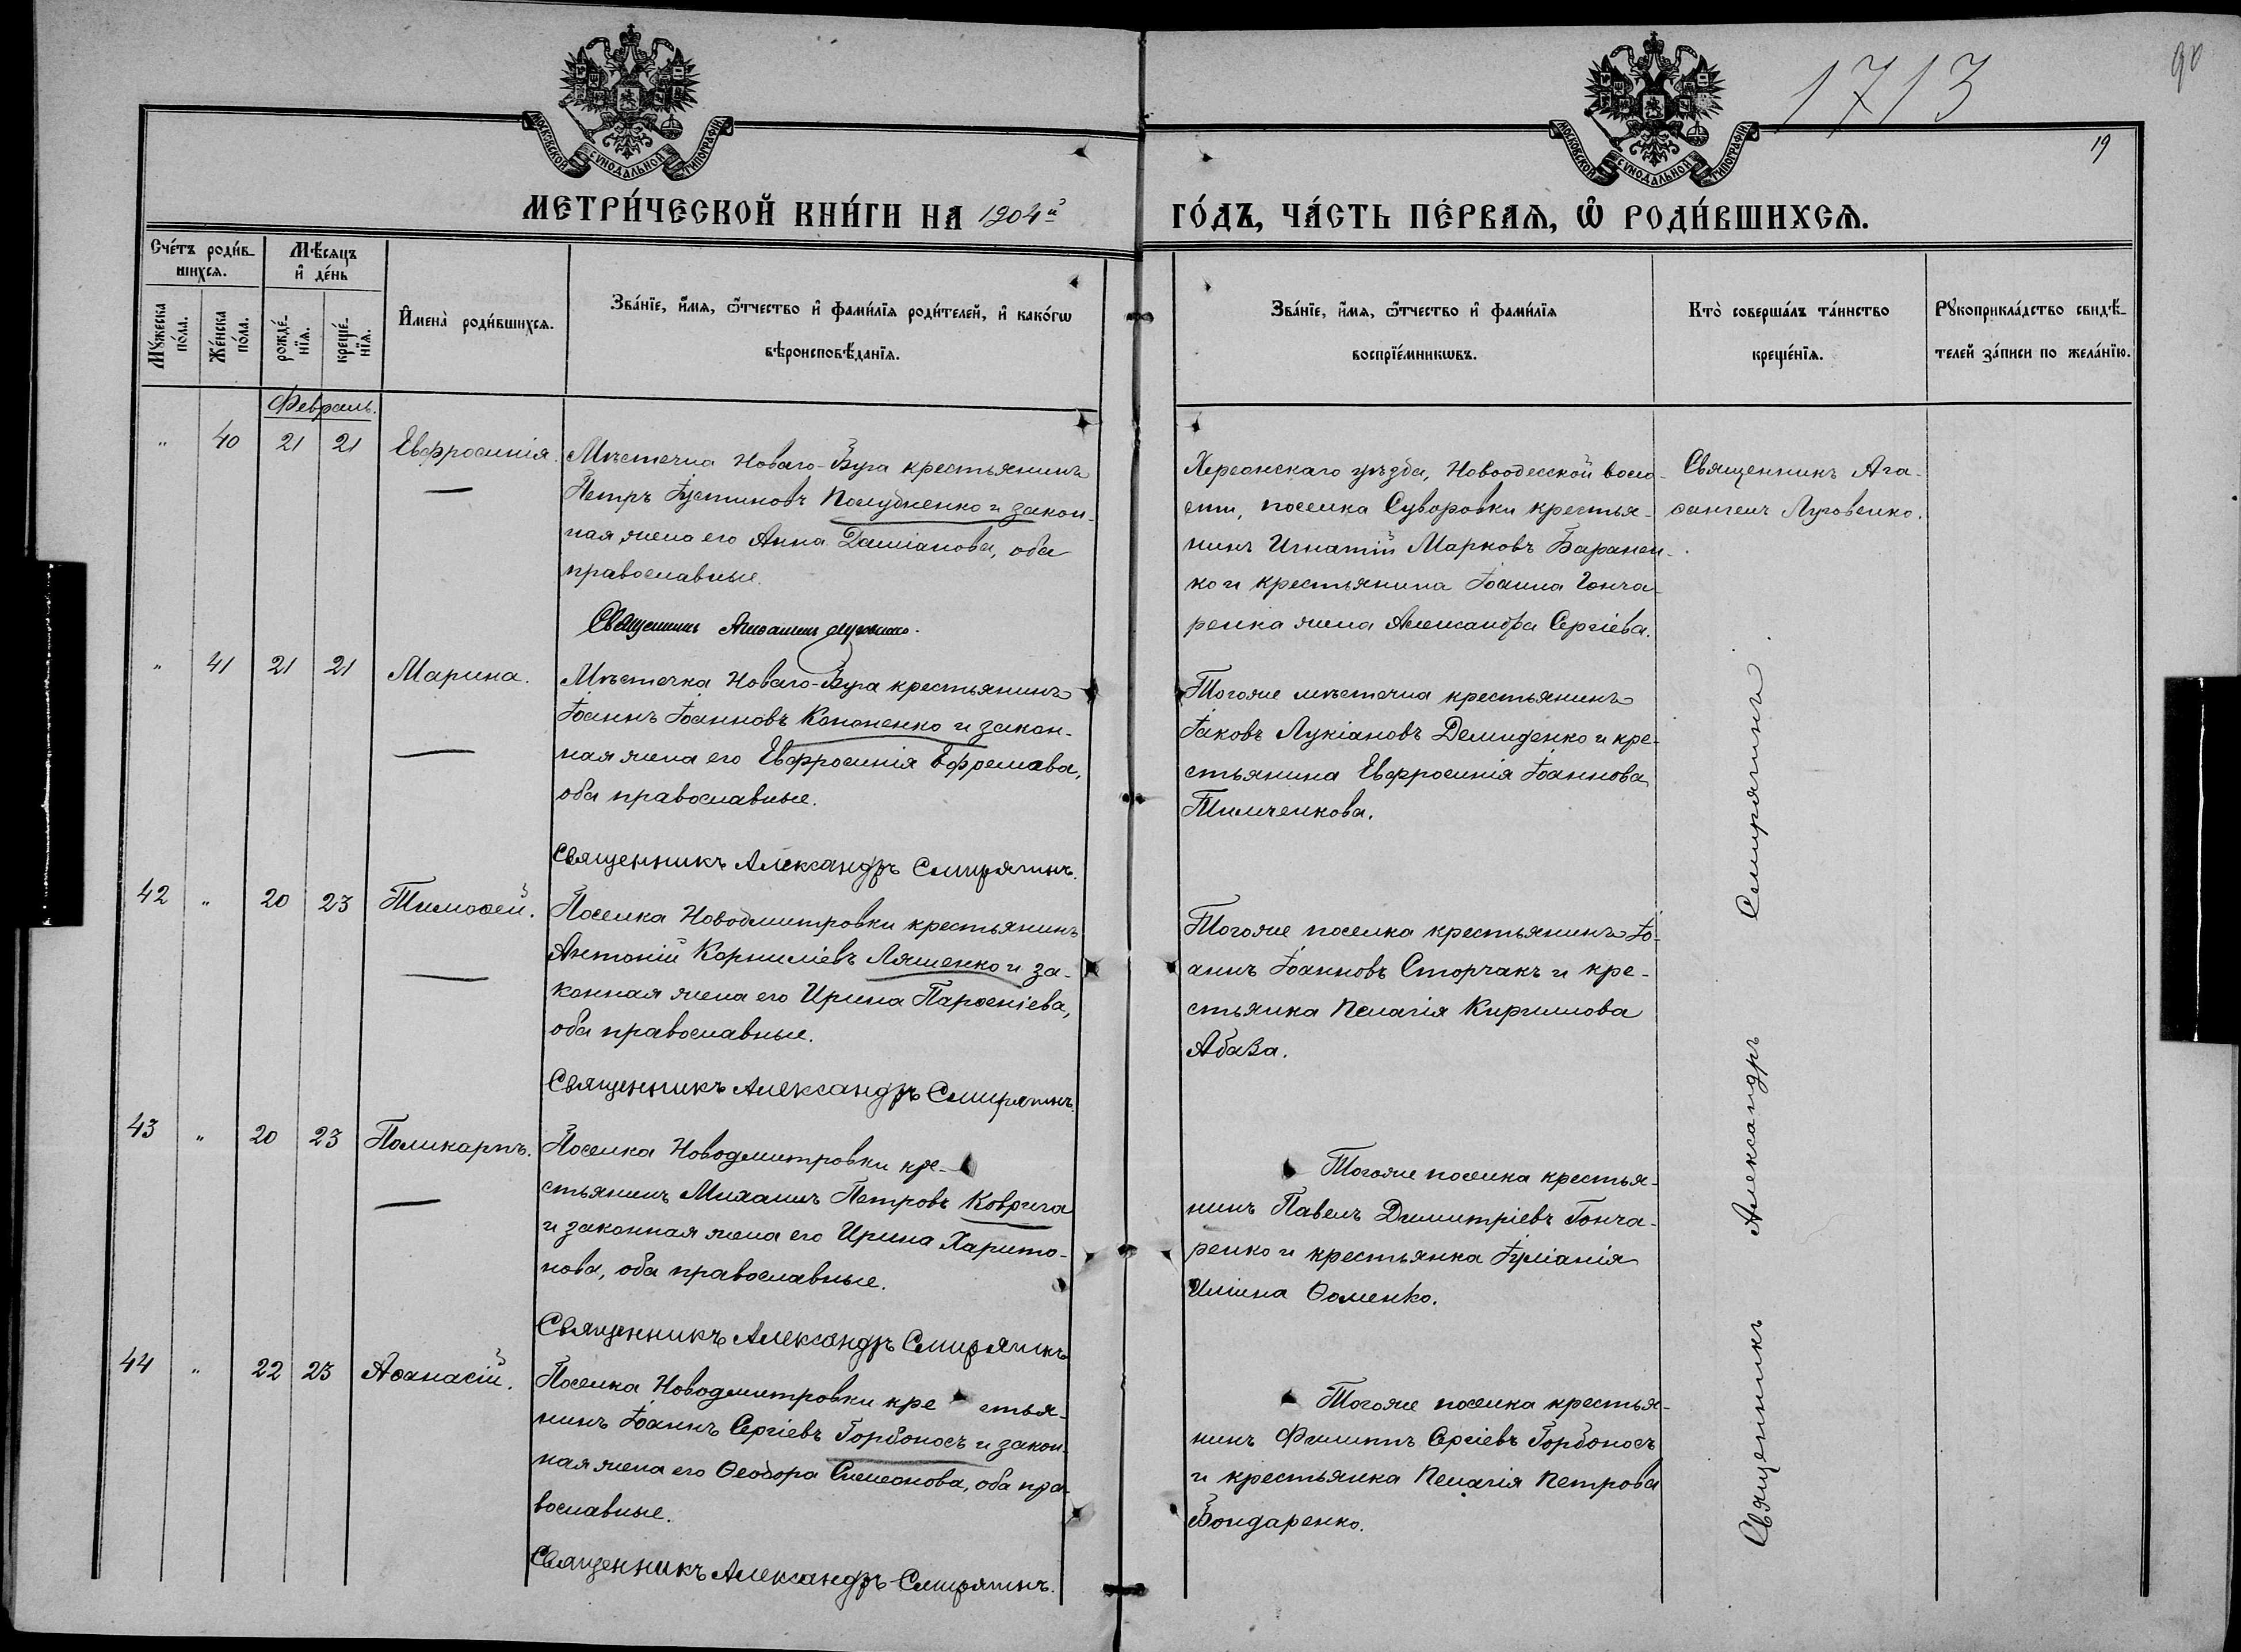 1713
90
19
МОСКОВСКОЙ СУНОДАЛЬНОЙ ТИПОГРАФІИ
МОСКОВСКОЙ СУНОДАЛЬНОЙ ТИПОГРАФІИ
МЕТРИ́ЧЕСКОЙ КНИ́ГИ НА 1904й ГО́ДЪ, ЧА́СТЬ ПЕ́РВАѦ, Ѡ҆ РОДИ́ВШИХСѦ.
Сче́тъ роди́в-
шихсѧ.
Мꙋ́жеска по́ла.
Же́нска по́ла.
Мѣ́сѧцъ
и҆ де́нь
рожде́-
нїѧ.
креще́-
нїѧ.
И҆мена̀ роди́вшихсѧ.
Зва́нїе, и҆́мѧ, ѻ҆́тчество и҆ фами́лїѧ роди́телей, и҆ како́гѡ
вѣроисповѣ́данїѧ.
Зва́нїе, и҆́мѧ, ѻ҆́тчество и҆ фами́лїѧ
воспрїе́мникѡвъ.
Кто̀ соверша́лъ та́инство
креще́нїѧ.
Рꙋкоприкла́дство свидѣ́-
телей за́писи по жела́нїю.
Февраль.
" 40 21 21 Евфросинія.
Мѣстечка Новаго-Буга крестьянинъ
Петръ Іустиновъ Полубненко и закон-
ная жена его Анна Даміанова, оба
православные.
Священникъ Агаѳангелъ Луговенко.
Херсонскаго уѣзда, Новоодесской воло-
сти, поселка Суворовки крестья-
нинъ Игнатій Марковъ Баранен-
ко и крестьянина Іоанна Гонча-
ренка жена Александра Сергіева.
Священникъ Ага-
ѳангелъ Луговенко.
" 41 21 21 Марина.
Мѣстечка Новаго-Буга крестьянинъ
Іоаннъ Іоанновъ Кононенко и закон-
ная жена его Евфросинія Ефремова,
оба православные.
Священникъ Александръ Смирягинъ.
Тогоже мѣстечка крестьянинъ
Іаковъ Лукіановъ Демиденко и кре-
стьянина Евфросинія Іоаннова
Тимченкова.
42 " 20 23 Тимоѳей.
Поселка Новодмитровки крестьянинъ
Антоній Корниліевъ Ляшенко и за-
конная жена его Ирина Парѳеніева,
оба православные.
Священникъ Александръ Смирягинъ.
Тогоже поселка крестьянинъ Іо-
аннъ Іоанновъ Сторчакъ и кре-
стьянка Пелагія Кириллова
Абаза.
43 " 20 23 Поликарпъ.
Поселка Новодмитровки кре-
стьянинъ Михаилъ Петровъ Коврига
и законная жена его Ирина Харито-
нова, оба православные.
Священникъ Александръ Смирягинъ
Тогоже поселка крестья-
нинъ Павелъ Димитріевъ Гонча-
ренко и крестьянка Іуліанія
Иліина Ѳоменко.
44 " 22 23 Аѳанасій.
Поселка Новодмитровки кре стья-
нинъ Іоаннъ Сергіевъ Горбоносъ и закон-
ная жена его Ѳеодора Симеонова, оба пра-
вославные.
Священникъ Александръ Смирягинъ.
Тогоже поселка крестья-
нинъ Филиппъ Сергіевъ Горбоносъ
и крестьянка Пелагія Петрова
Бондаренко.
Священникъ Александръ Смирягинъ.